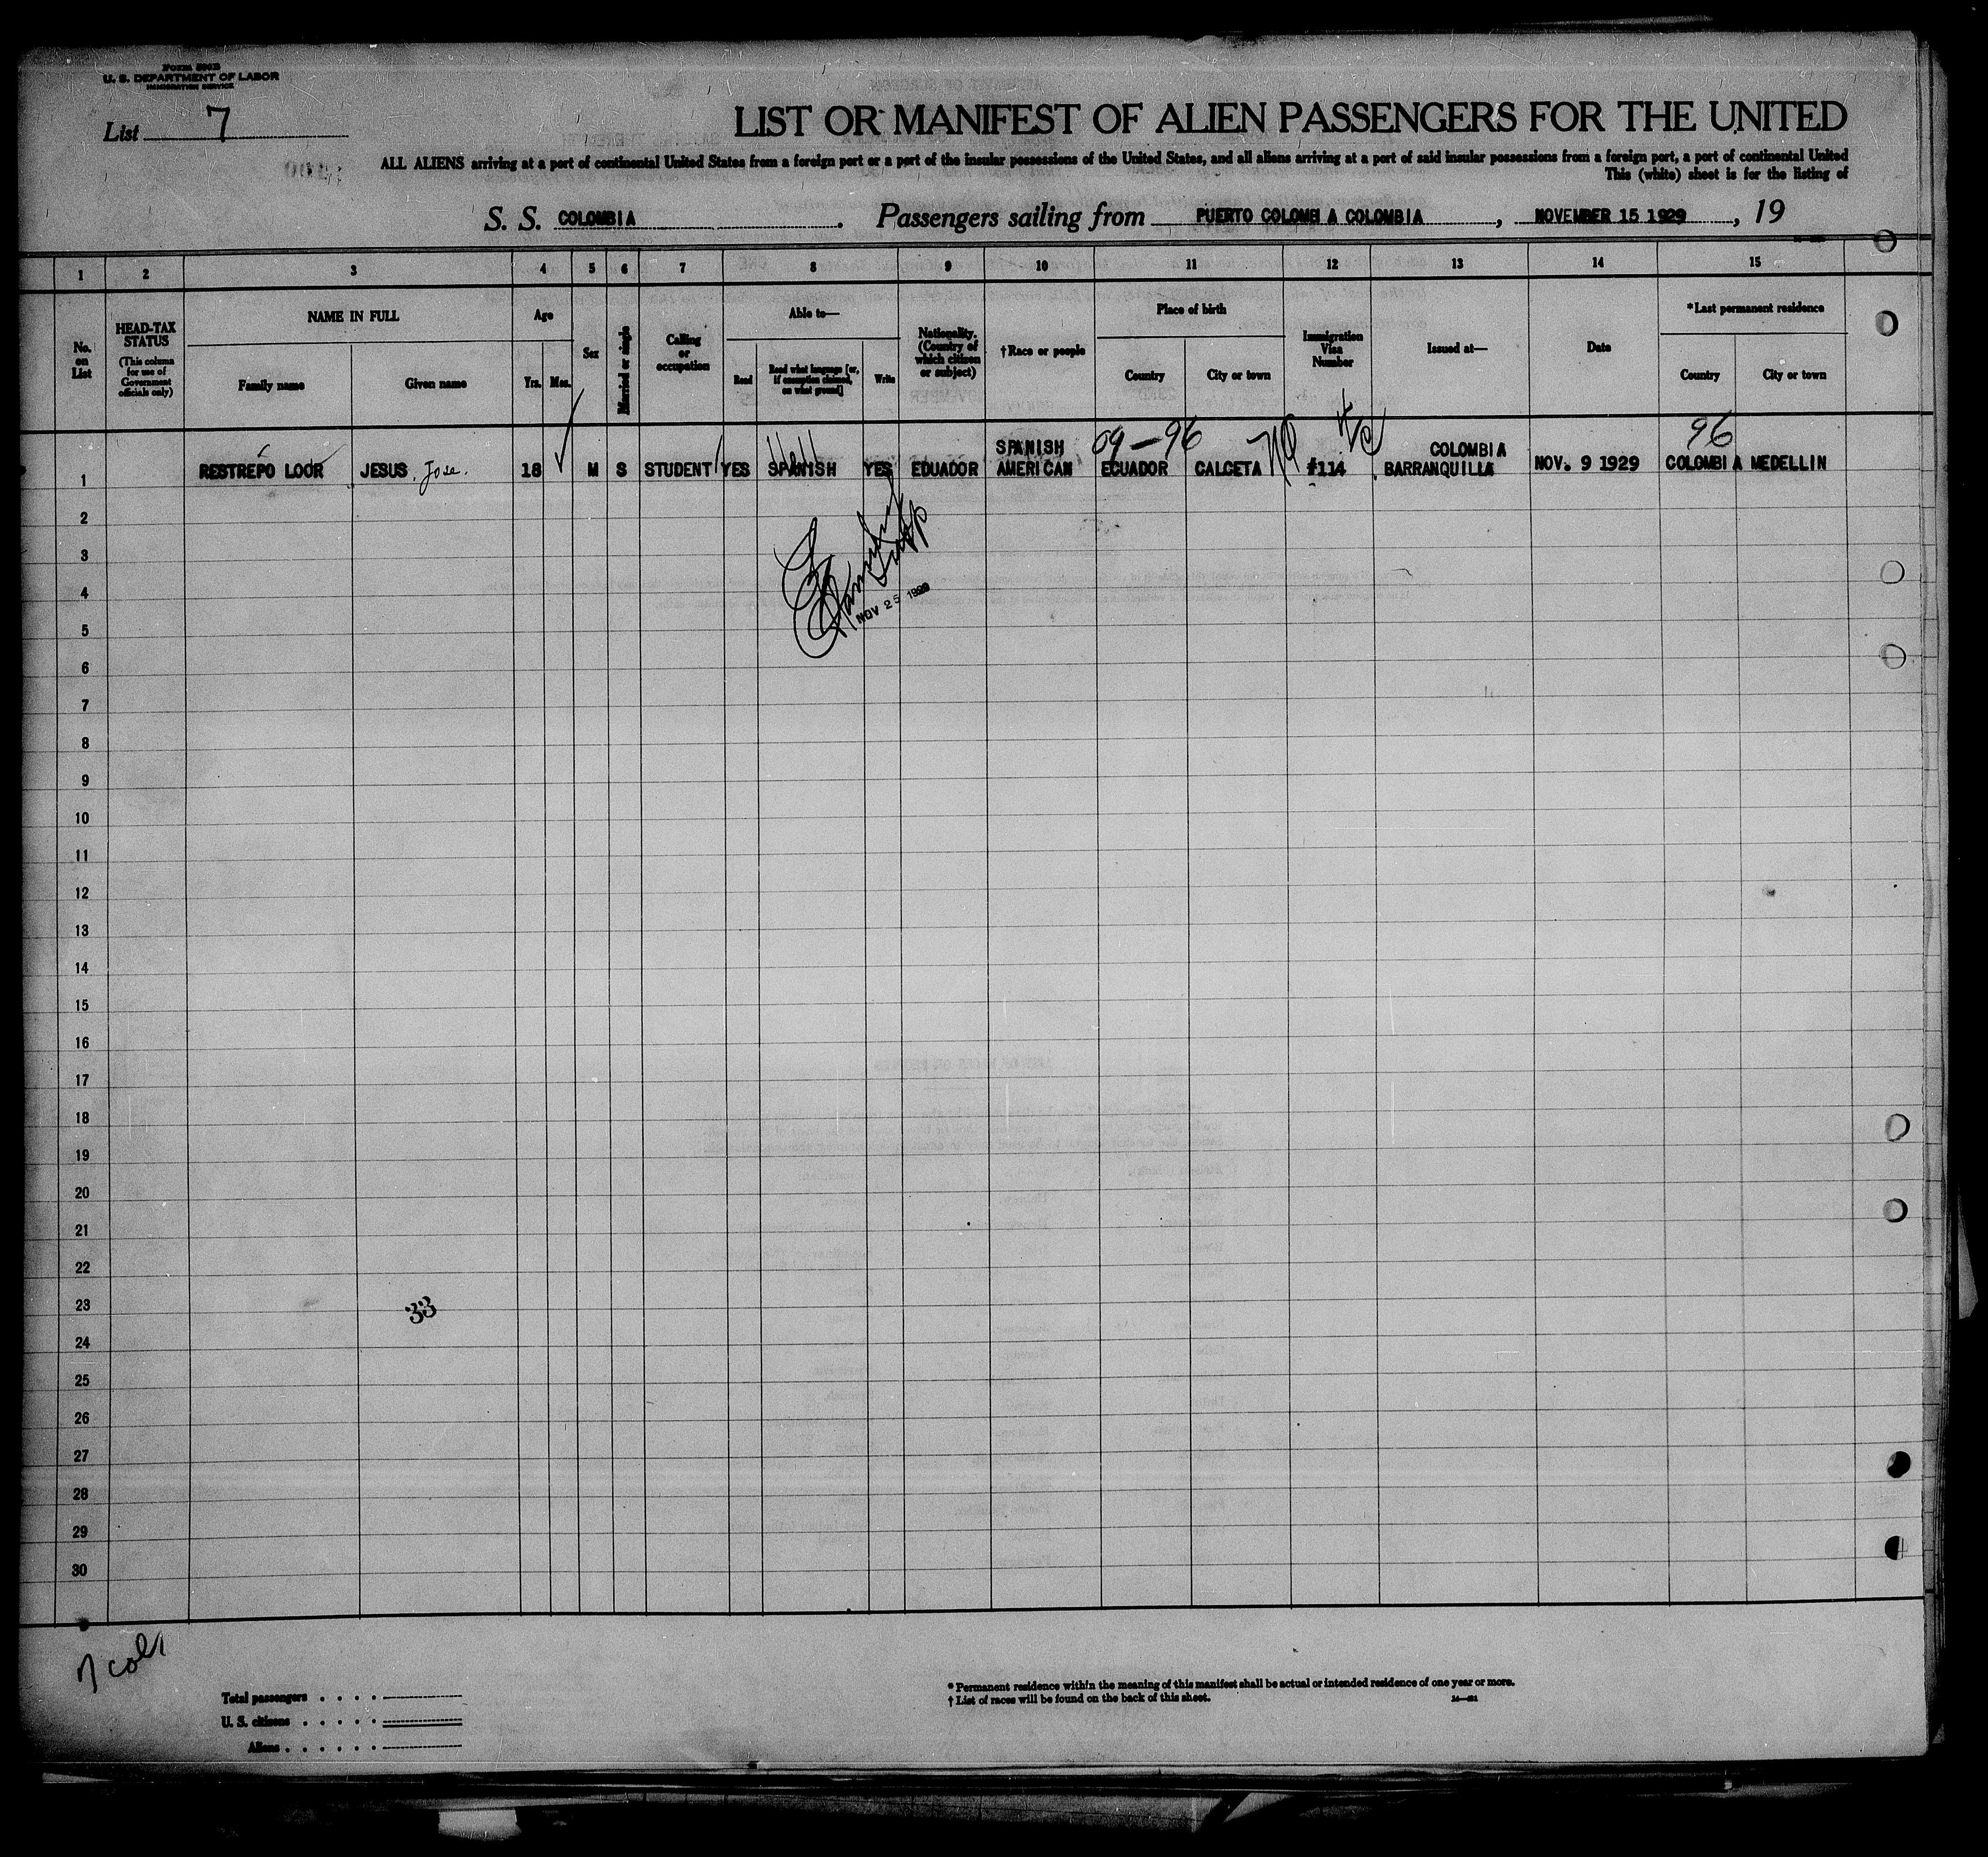 Form 500B
U. S. DEPARTMENT OF LABOR
IMMIGRATION SERVICE
List 7
LIST OR MANIFEST OF ALIEN PASSENGERS FOR THE UNITED
ALL ALIENS arriving at a port of continental United States from a foreign port or a port of the insular possessions of the United States, and all aliens arriving at a port of said insular possessions from a foreign port, a port of continental United
This (white) sheet is for the listing of
S. S. COLOMBIA. Passengers sailing from PUERTO COLOMBIA COLOMBIA, NOVEMBER 15 1929, 19
1 2 3 4 5 6 7 8 9 10 11 12 13 14 15
No. on List
HEAD-TAX STATUS
(This column for use of Government officials only)
NAME IN FULL
Family name Given name
Age
Yrs. Mos.
Sex
Married or single
Calling or occupation
Able to—
Read Read what language [or, if exemption claimed, on what ground] Write
Nationality. (Country of which citizen or subject)
†Race or people
Place of birth
Country City or town
Immigration Visa Number
Issued at—
Date
*Last permanent residence
Country City or town
SPANISH 09-96 COLOMBIA 96
1 RESTREPO LOOR JESUS Jose. 18 M S STUDENT YES SPANISH YES EDUADOR AMERICAN ECUADOR CALCETA #114 BARRANQUILLA NOV. 9 1929 COLOMBIA MEDELLIN
2
3
4
NOV 25 1929
5
6
7
8
9
10
11
12
13
14
15
16
17
18
19
20
21
22
23
33
24
25
26
27
28
29
30
Total passengers
U. S. citizens
Aliens
* Permanent residence within the meaning of this manifest shall be actual or intended residence of one year or more.
† List of races will be found on the back of this sheet.